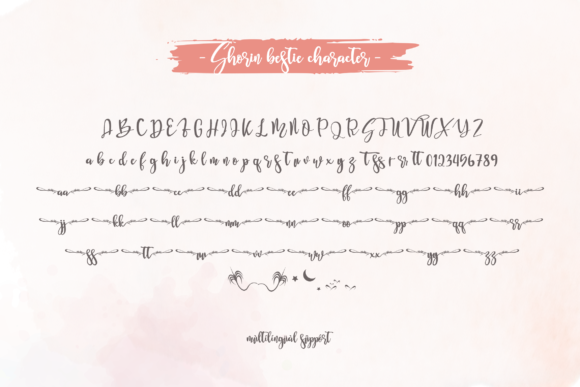 - Ghorin bestie character -
A B C D E F G H I J K L M N O P Q R S T U V W X Y Z
a b c d e f g h i j k l m n o p q r s t u v w x y z Tt ss r rr tt 0123456789
aa bb cc dd ee ff gg hh ii
jj kk ll mm nn oo pp qq rr
ss tt uu vv ww xx yy zz
multilingual support